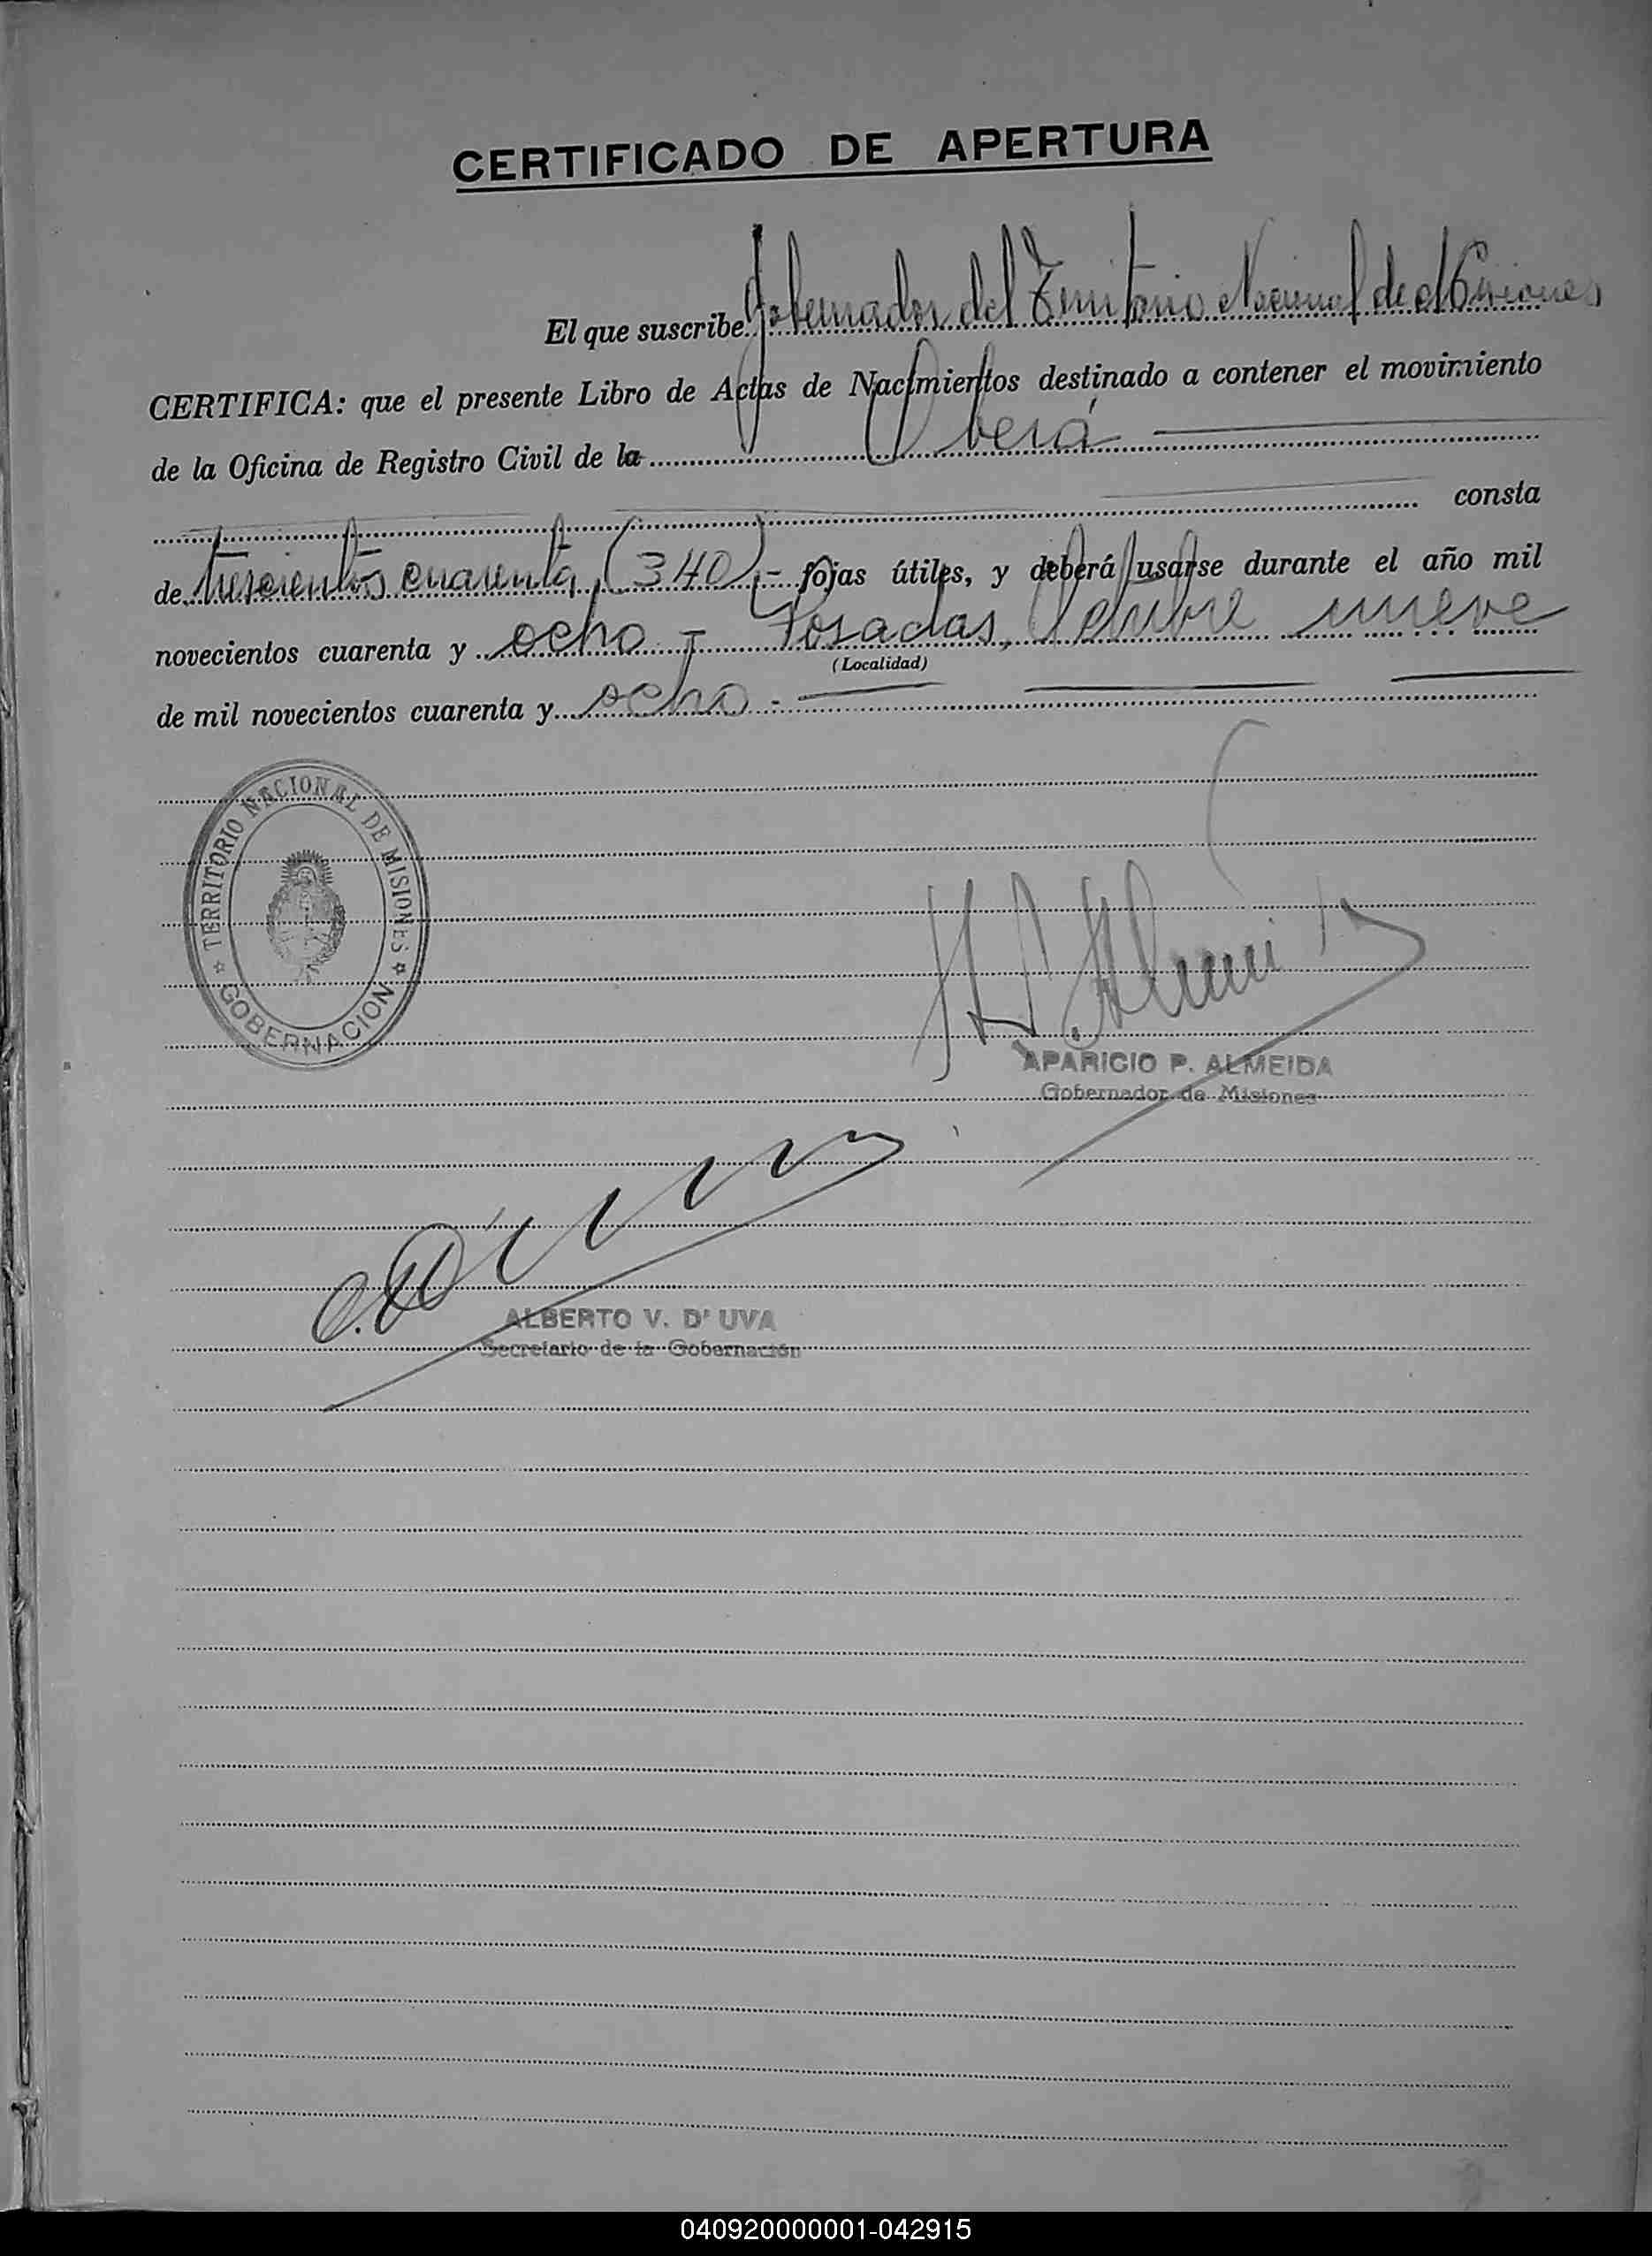 CERTIFICADO DE APERTURA
El que suscribe Gobernador del Territorio Nacional de Misiones
CERTIFICA: que el presente Libro de Actas de Nacimientos destinado a contener el movimiento
de la Oficina de Registro Civil de la Oberá
consta
de trescientos cuarenta, (340) - fojas útiles, y deberá usarse durante el año mil
novecientos cuarenta y ocho - Posadas, Octubre nueve
(Localidad)
de mil novecientos cuarenta y ocho -
TERRITORIO NACIONAL DE MISIONES
GOBERNACION
APARICIO P. ALMEIDA
Gobernador de Misiones
ALBERTO V. D' UVA
Secretario de la Gobernación
040920000001-042915